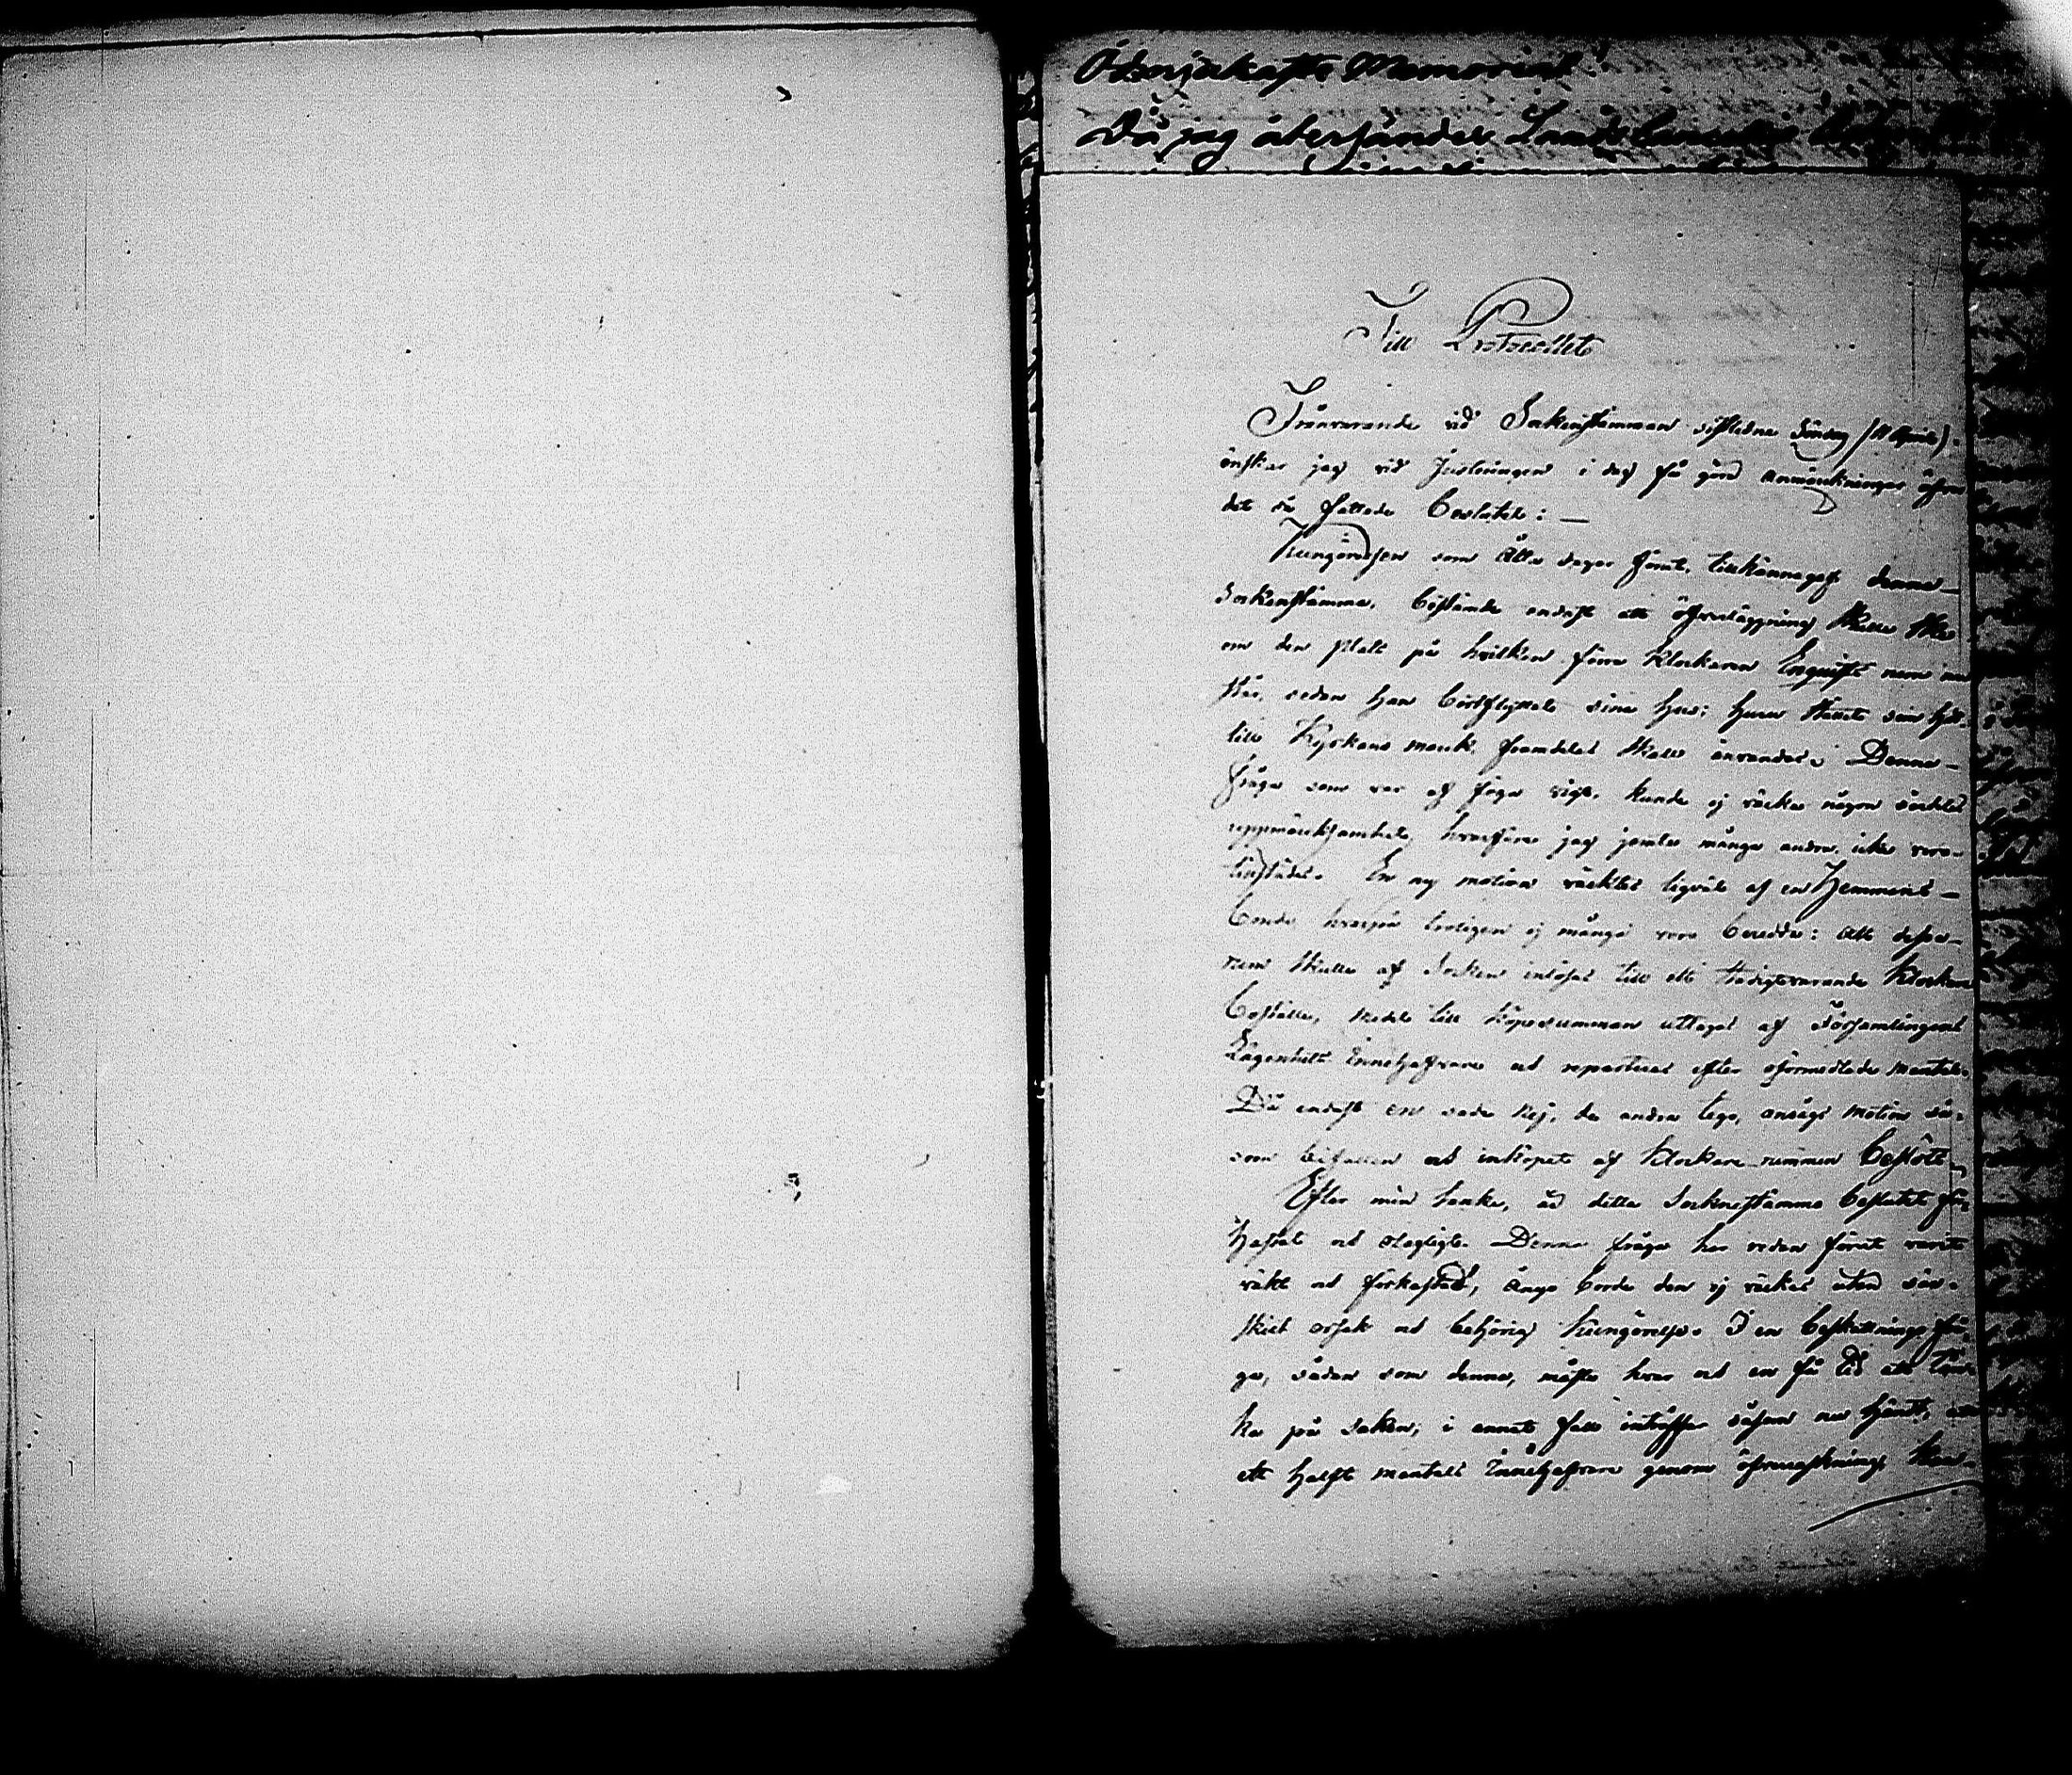 Ödmjukaste Memorial
Då jag återsänder
Till Protocollet
Frånvarande vid Sockenstämman sistledne Söndag (11 April)
önskar jag vid Justeringen i dag få göra anmärkningar öfver
det då fattade beslutet: —
Kungörelsen som åtta dagar förut tillkännagaf denna
Sockenstämma, bestämde endast att öfverläggning skulle ske
om den plats på hvilken förre Klockaren Enquist
sedan han bortflyttat sina hus; huru
till Kyrkans mark framdeles skall användas. Denna
fråga som var af föga vigt, kunde ej väcka någon särdeles
uppmärksamhet, hvarföre jag jemte många andra icke voro
tillstädes. En ny motion väcktes likväl af en Hemmans
bonde hvarpå troligen ej många voro beredda: att
skulle af Socken inlösas till ett stadigtvarande Klockare
boställe, medel till köpesumman uttagas af Församlingens
Lägenhets Innehafvare och reparteras efter oförmedlade mantal.
Då endast en sade Nej, de andra tego, ansågs motion så-
som bifallen och inköpet af Klockare rummen beslött
Efter min tanke, är detta Sockenstämmo beslutet för
hastat och olagligt. Denna fråga har redan förut varit
väkt och förkastad, ånyo borde den ej väckas utan sär-
skilt orsak och behörig Kungörelse. I en beskattnings frå-
ga, sådan som denna, måste hvar och en få tid att tän-
ka på saken, i annat fall inträffar såsom nu händt, att
ett halft mantals Innehafvare genom öfverraskning kan